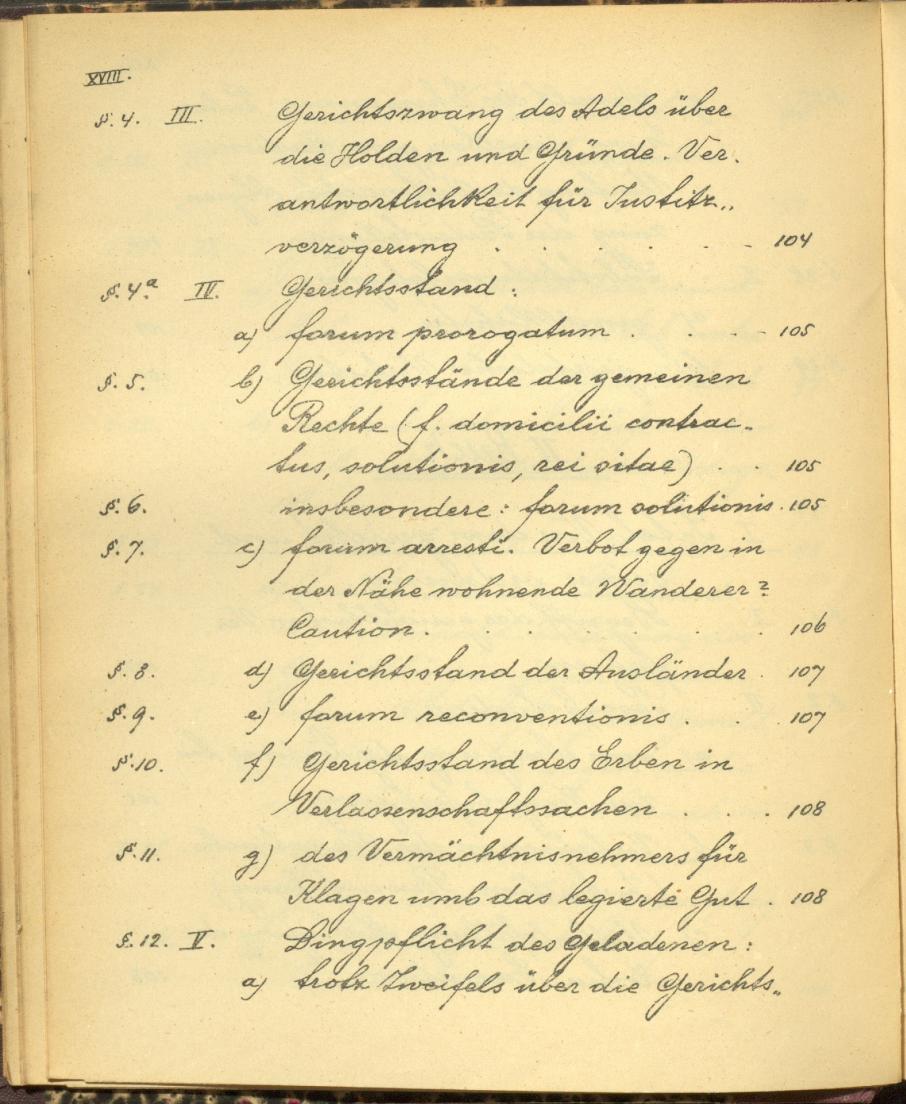 XVIII.
§. 4. III. Gerichtszwang des Adels über
die Holden und Gründe. Ver.
antwortlichkeit für Justitz„
verzögerung . . . . . . . 104
§. 4ª. IV. Gerichtsstand :
a) forum prorogatum . . . . 105
§. 5. b) Gerichtsstände der gemeinen
Rechte (f. domicilii contrac-
tus, solutionis, rei sitae) . . 105
§. 6. insbesondere : forum solutionis . 105
§. 7. c) forum arresti. Verbot gegen in
der Nähe wohnende Wanderer?
Caution . . . . . . . . 106
§. 8. d) Gerichtsstand der Ausländer . 107
§. 9. e) forum reconventionis . . . 107
§. 10. f) Gerichtsstand des Erben in
Verlassenschaftssachen . . . 108
§. 11. g) des Vermächtnisnehmers für
Klagen umb das legierte Gut . 108
§. 12. V. Dingpflicht des Geladenen :
a) trotz Zweifels über die Gerichts„